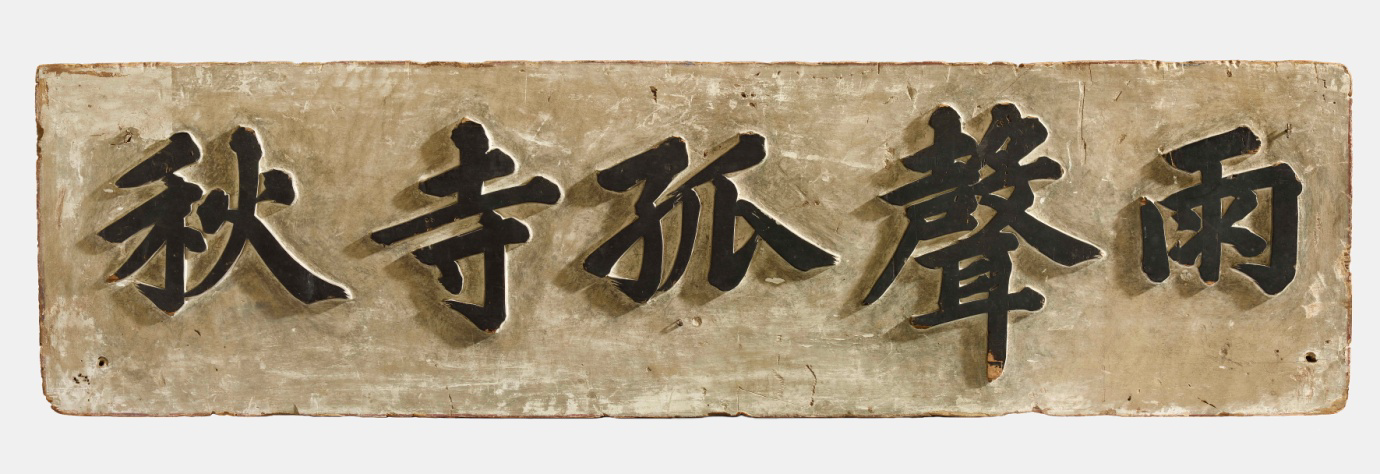 雨聲孤寺秋